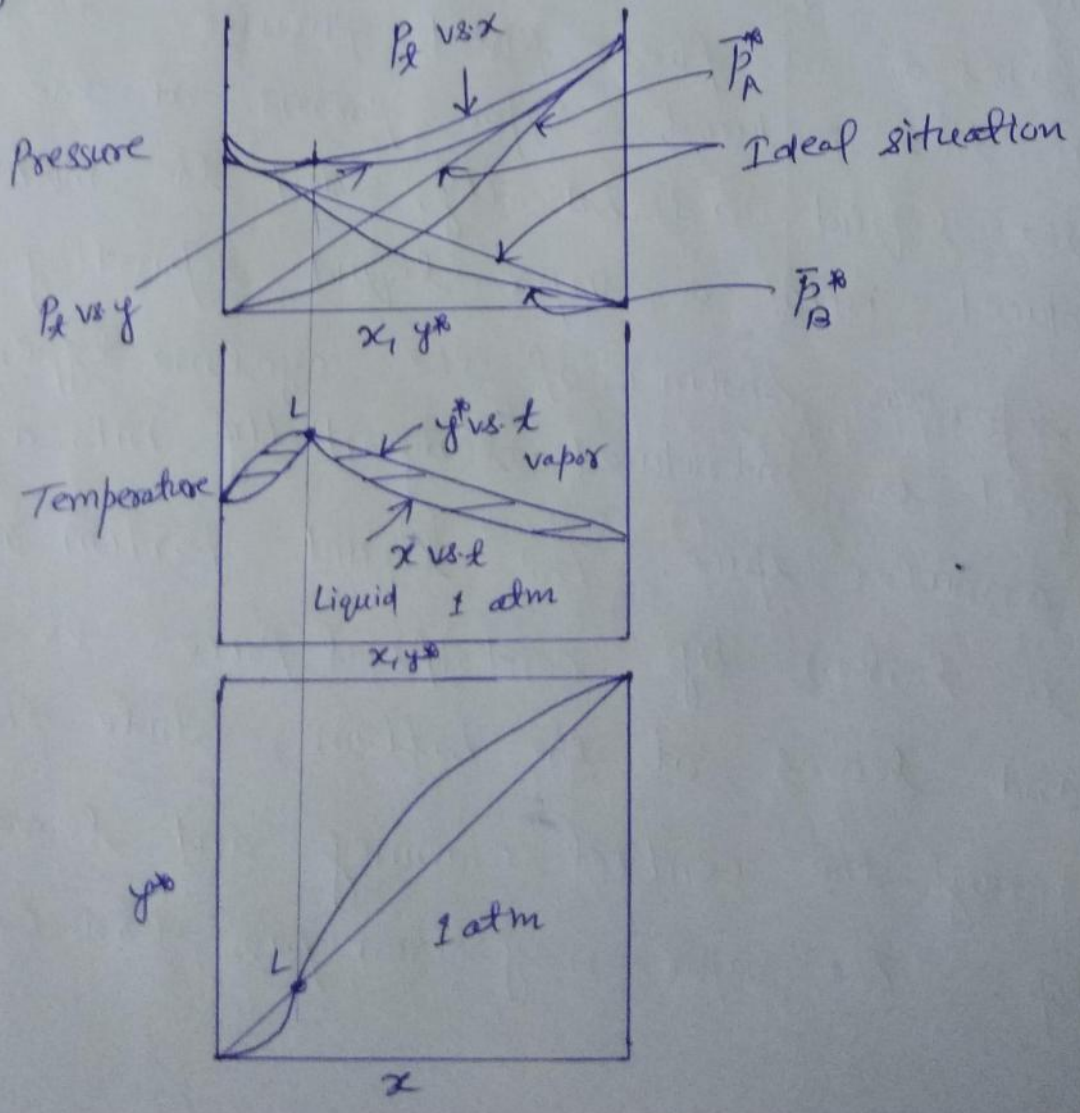 Pt vs. x
p̄*A
Pressure
Ideal situation
Pt vs y
p̄*B
x, y*
L
y* vs. t
vapor
Temperature
x vs. t
Liquid 1 atm
x, y*
y*
1 atm
L
x